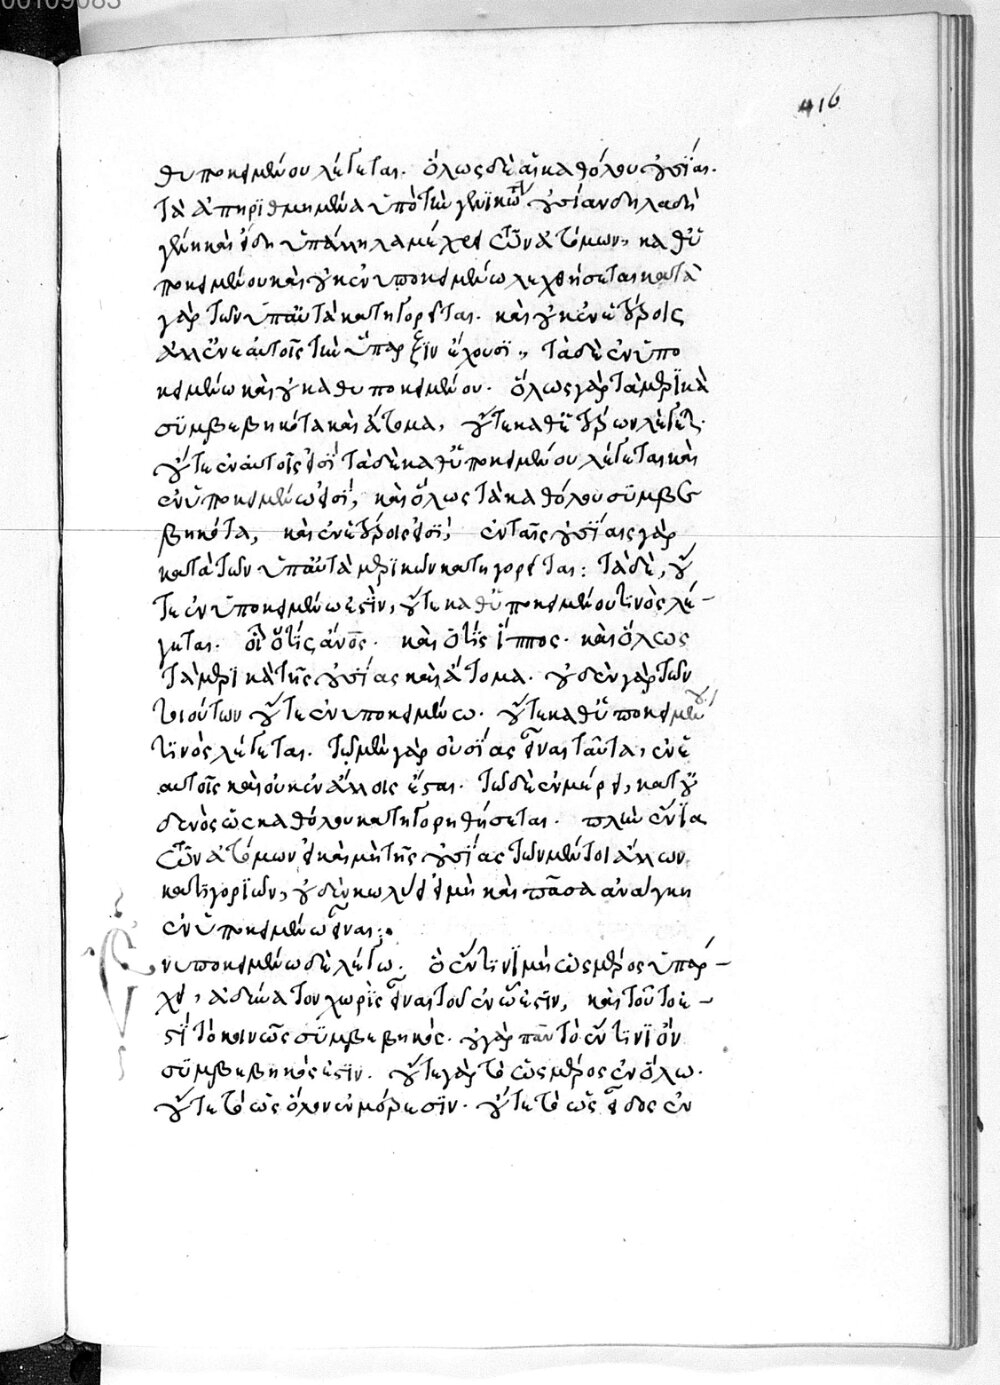 00109083
416
θυποκειμένου λέγεται. ὅλως δὲ αἱ καθόλου οὐσίαι.
τὰ ἀπηριθμημένα ὑπὸ τὴν γενικωτ οὐσίαν δηλαδὴ
γένη καὶ εἴδη ὑπάλληλα μέχρι τῶν ἀτόμων, καθ' ὑ
ποκειμένου καὶ οὐκ ἐν ὑποκειμένω λεχθήσεται κατὰ
γὰρ τῶν ὑπ' αὐτὰ κατηγορεῖται. καὶ οὐκ ἐν ἑτέροις
ἀλλ' ἐν ἑαυτοῖς τὴν ὕπαρξιν ἔχουσι, τὰ δὲ ἐν ὑπο
κειμένω καὶ οὐ καθ' ὑποκειμένου. ὅλως γὰρ τὰ μερικὰ
συμβεβηκότα καὶ ἄτομα, οὔτε καθ' ἑτέρων λέγεται.
οὔτε ἐν αὑτοῖς εἰσὶ τὰ δὲ καθ' ὑποκειμένου λέγεται καὶ
ἐν ὑποκειμένω εἰσὶ, καὶ ὅλως τὰ καθόλου συμβε
βηκότα, καὶ ἐν ἑτέροις εἰσὶ, ἐν ταῖς οὐσίαις γὰρ
κατὰ τῶν ὑπ' αὐτὰ μερικῶν κατηγορεῖται: τὰ δὲ, οὔ
τε ἐν ὑποκειμένω ἐστὶν, οὔτε καθ' ὑποκειμένου τινὸς λέ-
γεται. οἷ ὅτὶς ἄνος. καὶ ὁ τὶς ἵππος. καὶ ὅλως
τὰ μερικὰ τῆς οὐσίας καὶ ἄτομα. οὐδὲν γὰρ τῶν
τοιούτων οὔτε ἐν ὑποκειμένω. οὔτε καθ' ὑποκειμένου
τινὸς λέγεται. τῶ μὲν γὰρ οὐσίας εἶναι ταῦτα, ἐν ἑ
αυτοῖς καὶ οὐκ ἐν ἄλλοις ἔσται. τῶ δὲ ἐν μέρει, κατ' οὐ
δενὸς ὡς καθόλου κατηγορηθήσεται. πλὴν ἔνια
τῶν ἀτόμων εἰ καὶ μὴ τῆς οὐσίας τῶν μέντοι ἄλλων
κατηγοριῶν, οὐδὲν κωλύει εἰ μὴ καὶ πᾶσα ἀνάγκη
ἐν ὑποκειμένω εἶναι:
Ἐν ὑποκειμένω δὲ λέγω. ὃ ἔν τινι μὴ ὡς μέρος ὑπάρ-
χει, ἀδύνατον χωρὶς εἶναι τοῦ ἐν ὧ ἐστὶν, καὶ τοῦτο ἐ-
στὶ τὸ κοινῶς συμβεβηκός. οὐ γὰρ πᾶν τὸ ἔν τινι ὂν
συμβεβηκός ἐστιν. οὔτε γὰρ τὸ ὡς μέρος ἐν ὅλω.
οὔτε τὸ ὡς ὅλον ἐν μέρεσιν. οὔτε τὸ ὡς εἶδος ἐν